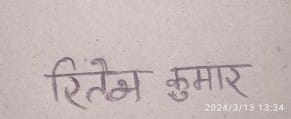 रितेश कुमार
2024/3/13 13:34